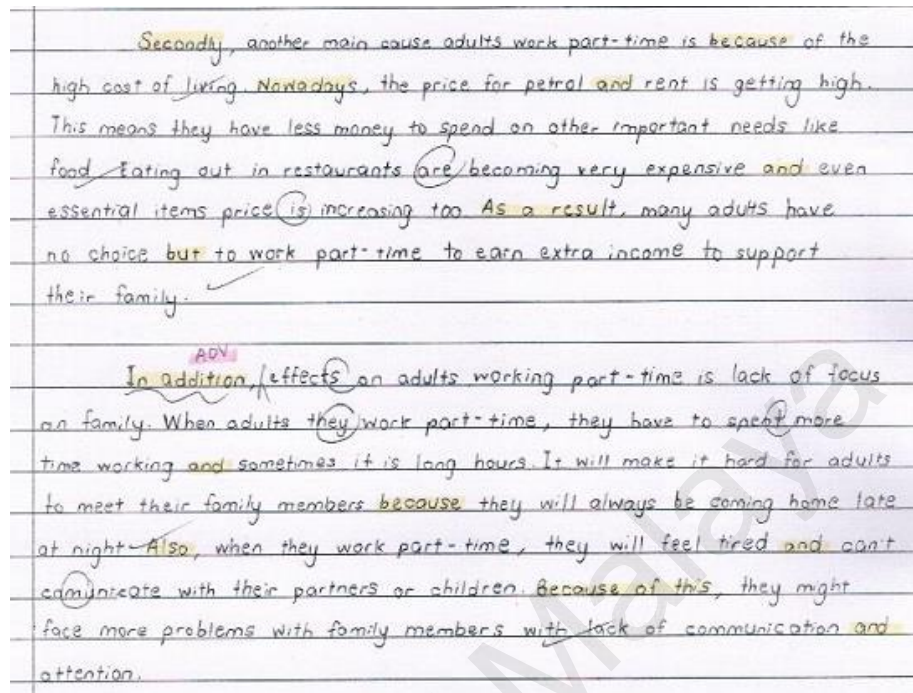 Secondly, another main cause adults work part-time is because of the
high cost of living. Nowadays, the price for petrol and rent is getting high.
This means they have less money to spend on other important needs like
food. Eating out in restaurants are becoming very expensive and even
essential items price is increasing too. As a result, many adults have
no choice but to work part-time to earn extra income to support
their family.
ADV
In addition, effects on adults working part-time is lack of focus
on family. When adults they work part-time, they have to spent more
time working and sometimes it is long hours. It will make it hard for adults
to meet their family members because they will always be coming home late
at night. Also, when they work part-time, they will feel tired and can't
comunicate with their partners or children. Because of this, they might
face more problems with family members with lack of communication and
attention.
Malaya